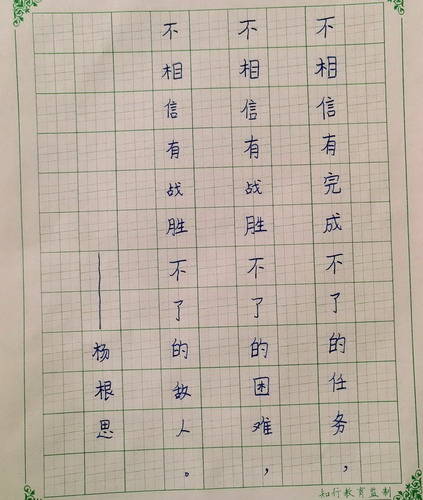 不相信有完成不了的任务，
不相信有战胜不了的困难，
不相信有战胜不了的敌人。
——杨根思
知行教育监制